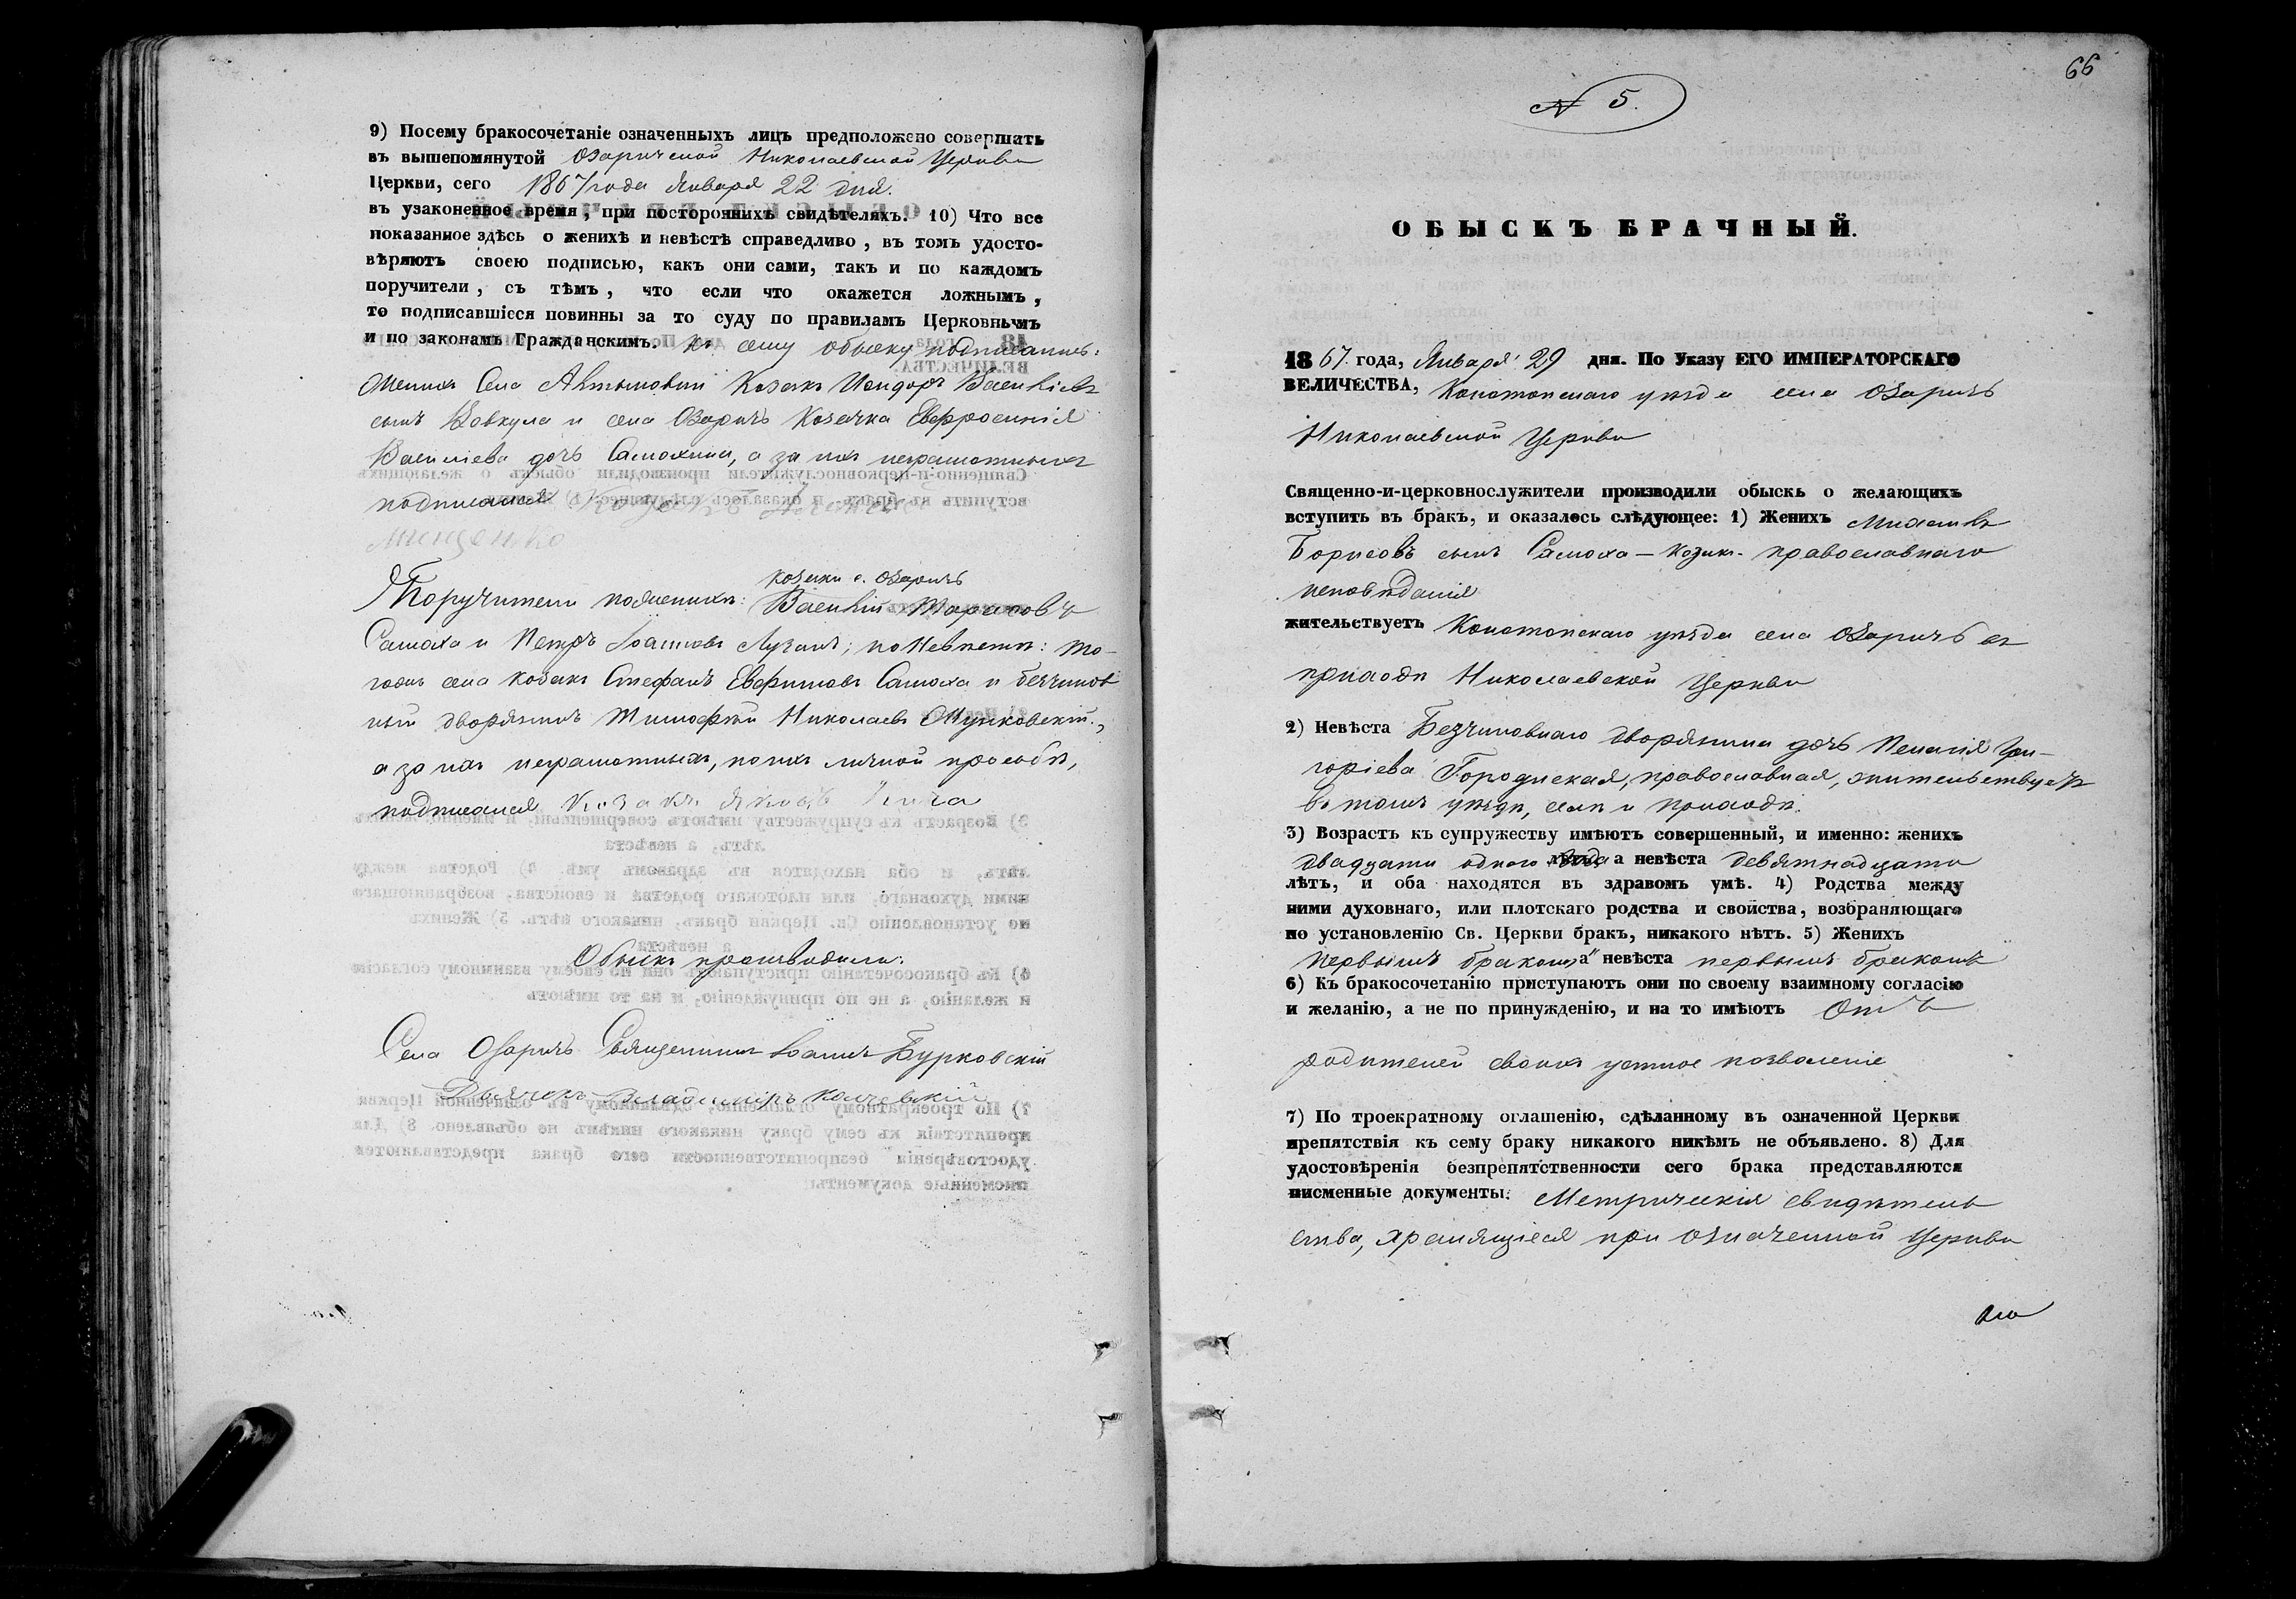 9) Посему бракосочетаніе означенныхъ лицъ предположено совершать
въ вышепомянутой Озаричской Николаевской Церкви
Церкви, сего 1867 года Января 22 дня.
въ узаконенное время, при постороннихъ свидѣтеляхъ. 10) Что все
показанное здѣсь о женихѣ и невѣстѣ справедливо, въ томъ удосто-
вѣряютъ своею подписью, какъ они сами, такъ и по каждомъ
поручители, съ тѣмъ, что если что окажется ложнымъ,
то подписавшіеся повинны за то суду по правиламъ Церковнымъ
и по законамъ Гражданскимъ. Къ сему обыску подписались:
Женихъ Села Козакъ Исидоръ Василіевъ
сынъ Вовкула и села Озаричъ Козачка Евфросинія
Василіева дочь Самохина, а за ихъ неграмотныхъ
подписался Козакъ
Мищенко
козаки с. Озаричъ
Поручители по женихѣ: Василій Тарасовъ
Самоха и Петръ Іоанновъ Лузанъ; по Невѣстѣ: то-
гожъ села козакъ Стефанъ Евфимовъ Самоха и безчинов
ный дворянинъ Тимофей Николаевъ Мушковскій,
а за ихъ неграмотныхъ, по ихъ личной просьбѣ,
подписался козакъ Яковъ
Обыскъ производили:
Села Озаричъ Священникъ Іоаннъ Бурковскій
Дьячекъ Владиміръ
66
N 5.
ОБЫСКЪ БРАЧНЫЙ.
1867. года, Января 29 дня. По Указу ЕГО ИМПЕРАТОРСКАГО
ВЕЛИЧЕСТВА, Конотопскаго уѣзда села Озаричъ
Николаевской Церкви
Священно-и-церковнослужители производили обыскъ о желающихъ
вступить въ бракъ, и оказалось слѣдующее: 1) Женихъ Михаилъ
Борисовъ сынъ Самоха - козакъ - православнаго
исповѣданія
жительствуетъ Конотопскаго уѣзда села Озаричъ въ
приходѣ Николаевской Церкви
2) Невѣста Безчиновнаго дворянина дочь Пелагія Гри-
горіева Городиская, православная, жительствуетъ
въ томъ уѣздѣ, селѣ и приходѣ.
3) Возрастъ къ супружеству имѣютъ совершенный, и именно: женихъ
двадцати одного года а невѣста девятнадцати
лѣтъ, и оба находятся въ здравомъ умѣ. 4) Родства между
ними духовнаго, или плотскаго родства и свойства, возбраняющаго
по установленію Св. Церкви бракъ, никакого нѣтъ. 5) Женихъ
первымъ бракомъ, а невѣста первымъ бракомъ
6) Къ бракосочетанію приступаютъ они по своему взаимному согласію
и желанію, а не по принужденію, и на то имѣютъ Отъ
родителей своихъ устное позволеніе
7) По троекратному оглашенію, сдѣланному въ означенной Церкви
препятствія къ сему браку никакого никѣмъ не объявлено. 8) Для
удостовѣренія безпрепятственности сего брака представляются
письменные документы: Метрическія свидѣтель
ства, хранящіеся при означенной Церкви